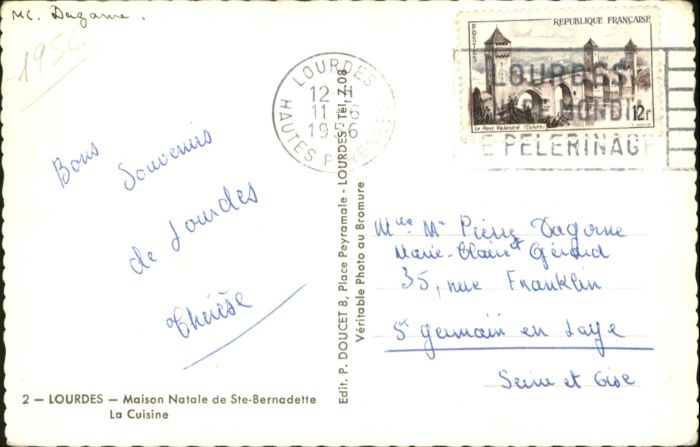 MC. Dagorne.
1956
LOURDES
12 H
11-6
1956
HAUTES PYRENEES
REPUBLIQUE FRANÇAISE
POSTES
12F
Le Pont Valentré (Cahors)
LOURDES
DE MONDI
PELERINAG
Bons
Souvenirs
de Lourdes
Thérèse
Mme Mr Pierre Dagorne
Marie-Claire et Gérard
35, rue Franklin
St Germain en Laye
Seine et Oise
Edit. P. DOUCET 8, Place Peyramale - LOURDES - Tél. 7.08
Véritable Photo au Bromure
2 — LOURDES — Maison Natale de Ste-Bernadette
La Cuisine